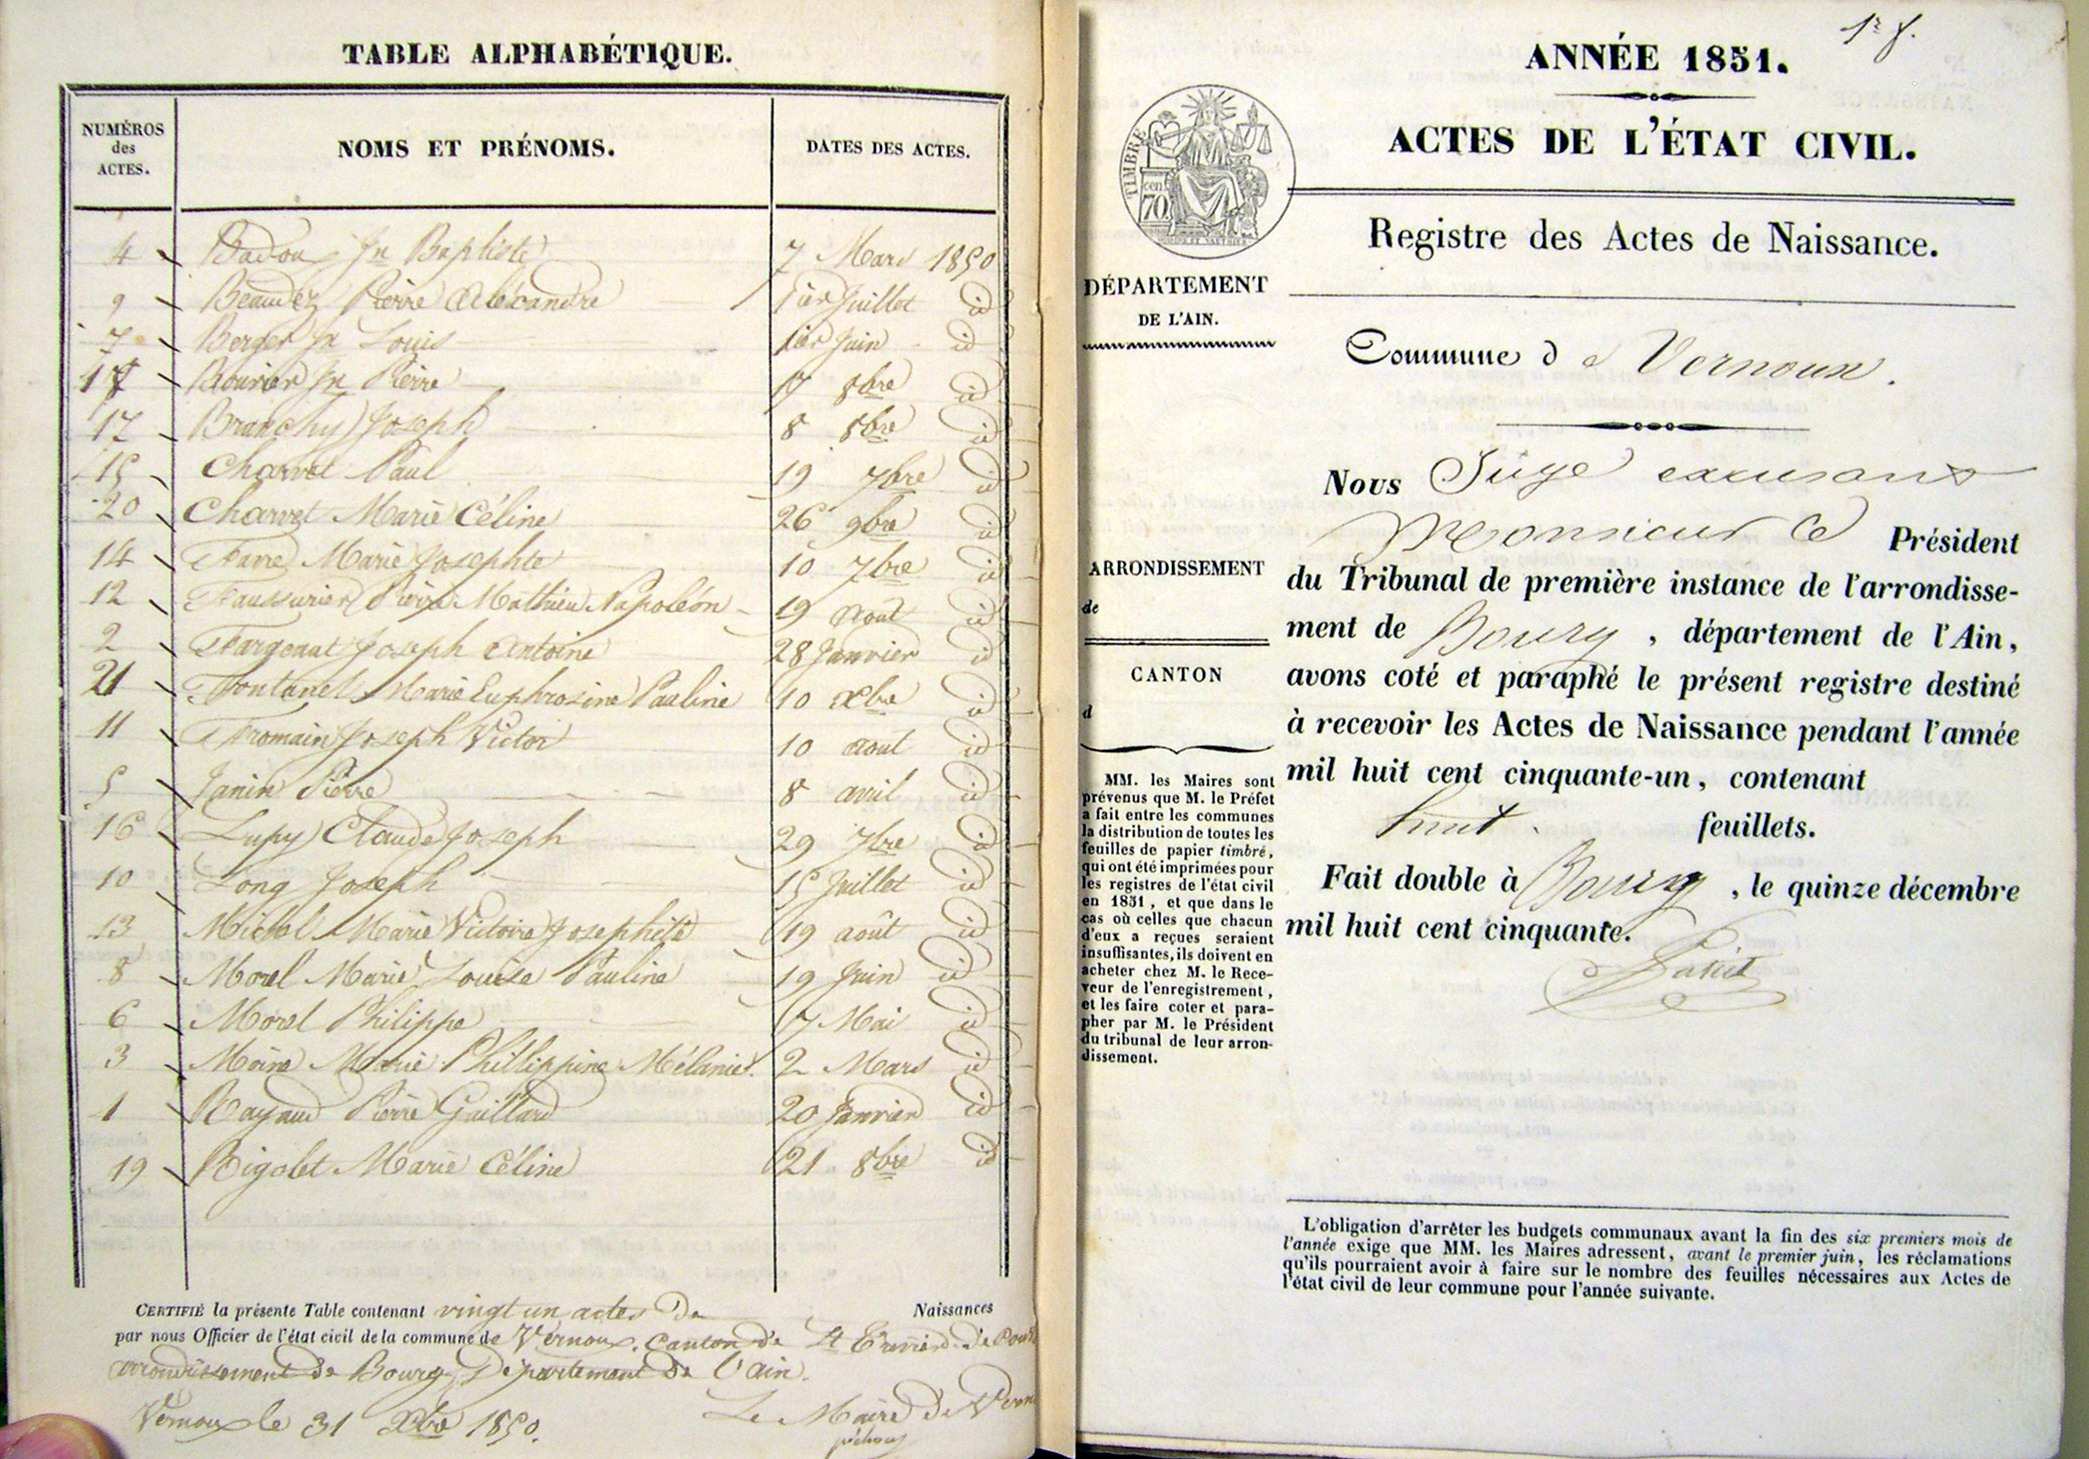 TABLE ALPHABÉTIQUE.
NUMÉROS des ACTES. NOMS ET PRÉNOMS. DATES DES ACTES.
4 Badou Jn Baptiste 7 Mars 1850
9 Beaudez Pierre Aléxandre 1ier Juillet id
7 Berger Jn Louis 1ier Juin id
Bouvier Jn Pierre 17 8bre id
17 Branchy Joseph 8 8bre id
15 Charvet Paul 19 7bre id
20 Charvet Marie Céline 26 9bre id
14 Favre Marie Josephte 10 7bre id
12 Faussurier Pierre Mathieu Napoléon 19 Août id
2 Fargeout Joseph Antoine 28 Janvier id
21 Fontanel Marie Euphrosine Pauline 10 Xbre id
11 Fromain Joseph Victor 10 aout id
5 Janin Pierre 8 avril id
16 Lupy Claude Joseph 29 7bre id
10 Long Joseph 15 Juillet id
13 Michel Marie Victoire Josephte 19 août id
8 Morel Marie Louise Pauline 19 Juin id
6 Morel Philippe 7 Mai id
3 Moine Marie Phillippine Mélanie. 2 Mars id
1 Rayaud Pierre Gaillard 20 Janvier id
19 Rigolet Marie Céline 21 8bre id
CERTIFIÉ la présente Table contenant vingt un actes de Naissances
par nous Officier de l'état civil de la commune de Vernoux. Canton de St Trivier de
arrondissement de Bourg Département de l'ain.
Vernoux le 31 Xbre 1850. Le Maire de
1r f.
ANNÉE 1851.
ACTES DE L'ÉTAT CIVIL.
TIMBRE
cen.
70
Registre des Actes de Naissance.
DÉPARTEMENT
DE L'AIN.
Commune de Vernoux.
Nous Juge
Monsieur le Président
du Tribunal de première instance de l'arrondisse-
ment de Bourg, département de l'Ain,
avons coté et paraphé le présent registre destiné
à recevoir les Actes de Naissance pendant l'année
mil huit cent cinquante-un, contenant
huit feuillets.
Fait double à Bourg, le quinze décembre
mil huit cent cinquante.
ARRONDISSEMENT
de
CANTON
d
MM. les Maires sont
prévenus que M. le Préfet
a fait entre les communes
la distribution de toutes les
feuilles de papier timbré,
qui ont été imprimées pour
les registres de l'état civil
en 1851, et que dans le
cas où celles que chacun
d'eux a reçues seraient
insuffisantes, ils doivent en
acheter chez M. le Rece-
veur de l'enregistrement,
et les faire coter et para-
pher par M. le Président
du tribunal de leur arron-
dissement.
L'obligation d'arrêter les budgets communaux avant la fin des six premiers mois de
l'année exige que MM. les Maires adressent, avant le premier juin, les réclamations
qu'ils pourraient avoir à faire sur le nombre des feuilles nécessaires aux Actes de
l'état civil de leur commune pour l'année suivante.